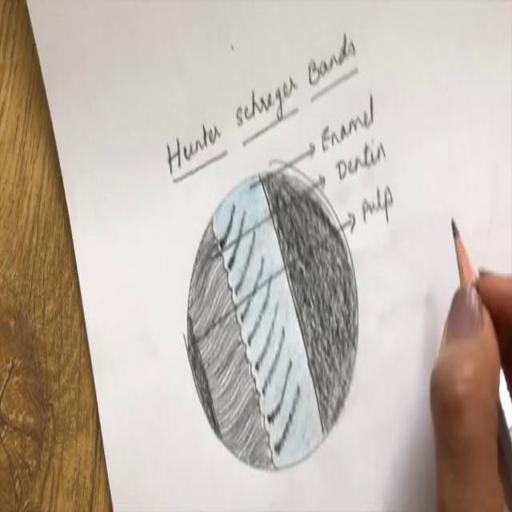 Hunter schreger Bands
Enamel
Dentin
Pulp